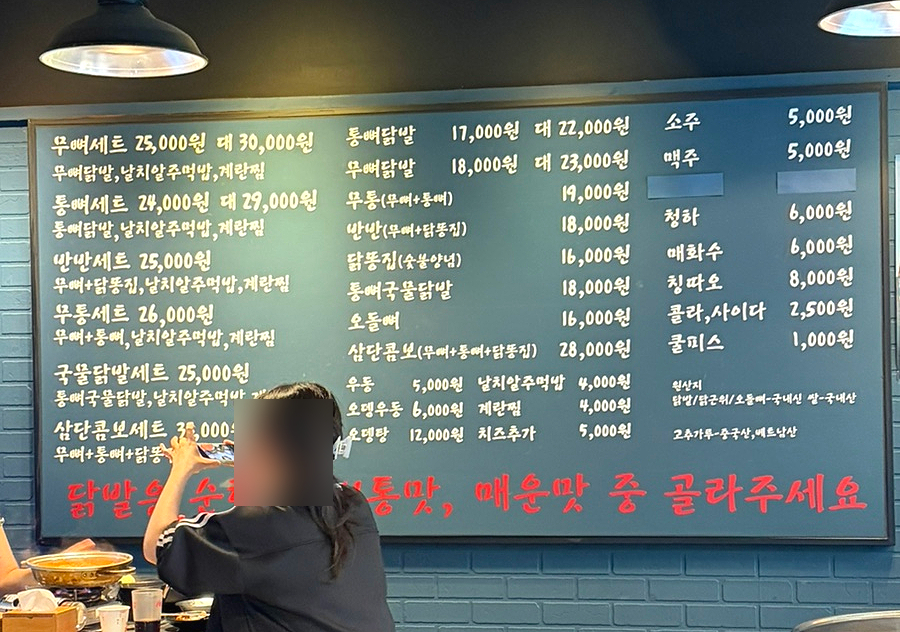 무뼈세트 25,000원 대 30,000원
무뼈닭발,날치알주먹밥,계란찜
통뼈세트 24,000원 대 29,000원
통뼈닭발,날치알주먹밥,계란찜
반반세트 25,000원
무뼈+닭똥집,날치알주먹밥,계란찜
무통세트 26,000원
무뼈+통뼈,날치알주먹밥,계란찜
국물닭발세트 25,000원
통뼈국물닭발,날치알주먹밥
삼단콤보세트
무뼈+통뼈+닭똥
통뼈닭발 17,000원 대 22,000원
무뼈닭발 18,000원 대 23,000원
무통(무뼈+통뼈) 19,000원
반반(무뼈+닭똥집) 18,000원
닭똥집(숯불양념) 16,000원
통뼈국물닭발 18,000원
오돌뼈 16,000원
삼단콤보(무뼈+통뼈+닭똥집) 28,000원
우동 5,000원 날치알주먹밥 4,000원
오뎅우동 6,000원 계란찜 4,000원
오뎅탕 12,000원 치즈추가 5,000원
소주 5,000원
맥주 5,000원
청하 6,000원
매화수 6,000원
칭따오 8,000원
콜라,사이다 2,500원
쿨피스 1,000원
원산지
닭발/닭근위/오돌뼈-국내산 쌀-국내산
고추가루-중국산,베트남산
닭발은 보통맛, 매운맛 중 골라주세요